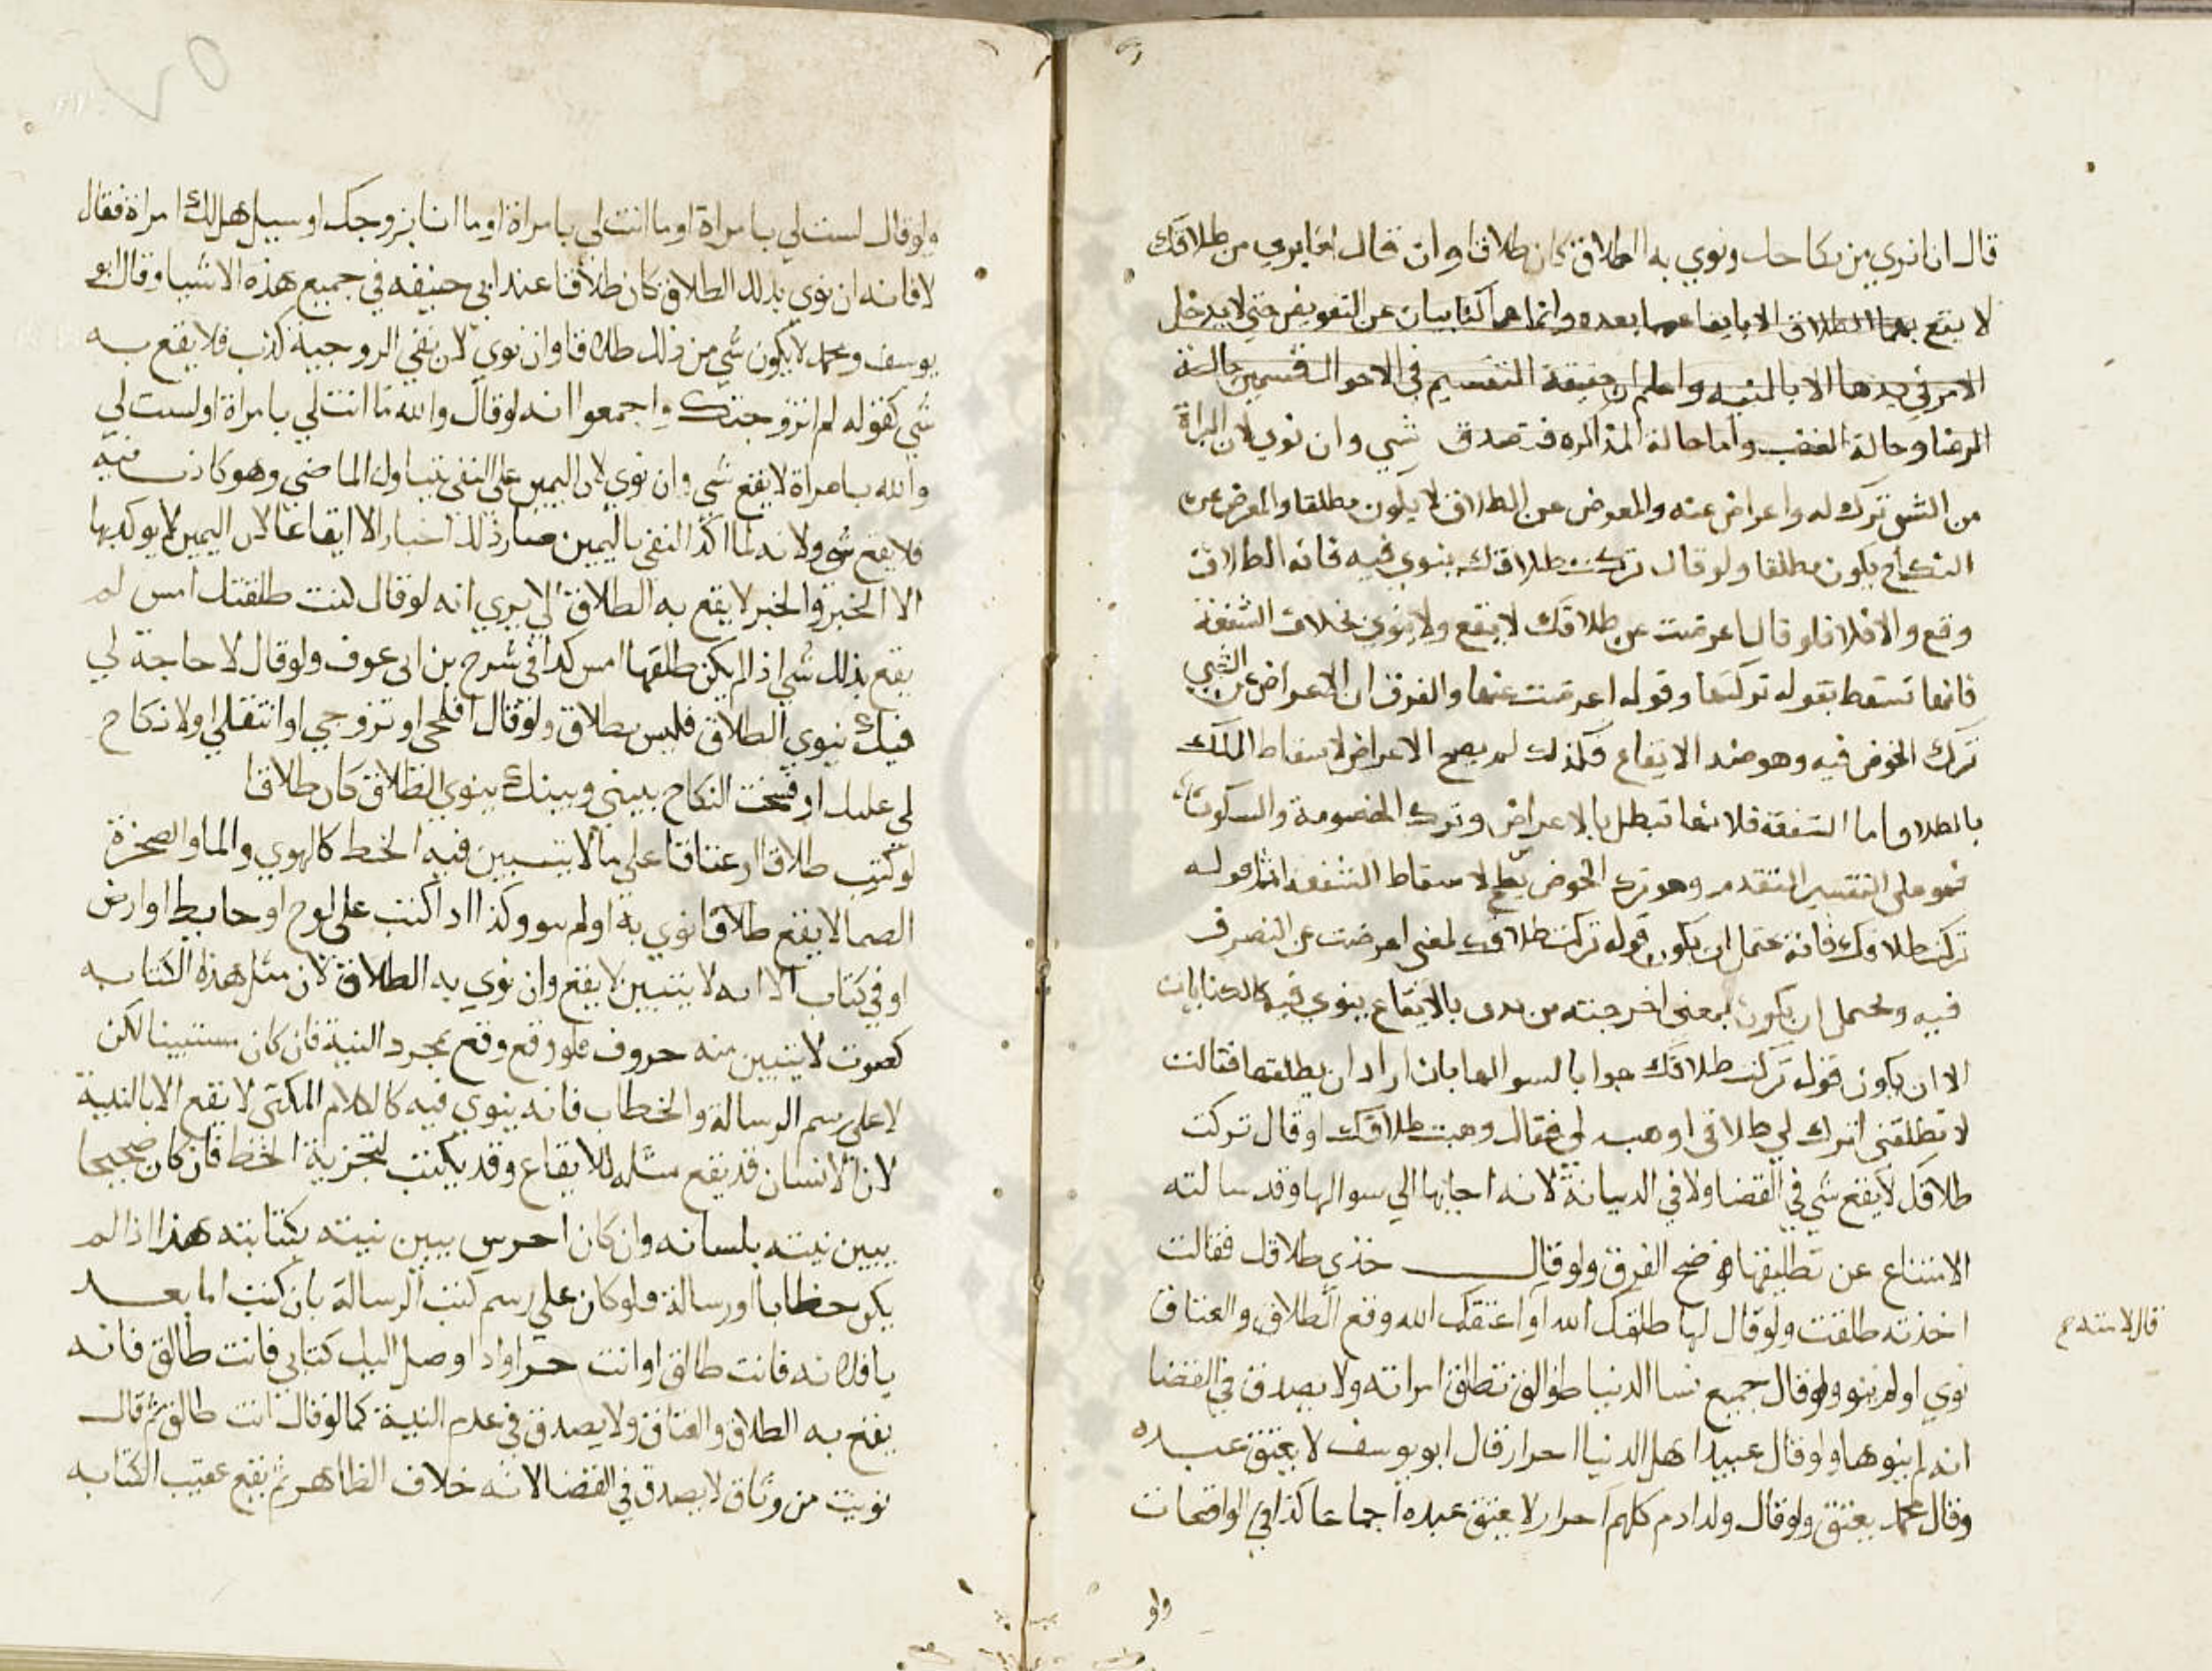 قال انا بري من نكاحك ونوي به الطلاق كان طلاقا وان قال انا بري من طلاقك
لا يقع بهما الطلاق الا بايقاعهما بعده وانما هما كنايتان عن التفويض حتي لا يدخل
الامر في يدها الا بالنيه واعلم ان حقيقة التقسيم في الاحوال قسمين حالة
الرضا وحالة الغضب واما حالة المذاكره فتصدق شي وان نوي لان البراة
من الشي ترك له واعراض عنه والمعرض عن الطلاق لا يكون مطلقا والمعرض عن
النكاح يكون مطلقا ولو قال تركت طلاقك ينوي فيه فانه الطلاق
وقع والا فلا فلو قال اعرضت عن طلاقك لا يقع ولا ينوي بخلاف الشفعة
فانها تسقط بقوله تركتها وقوله اعرضت عنها والفرق ان الاعراض عن الشي
ترك الخوض فيه وهو ضد الايقاع فكذلك لم يصح الاعراض لاسقاط الملك
بالطلاق واما الشفعة فلانها تبطل بالاعراض وترك الخصومة والسكوت
فهو علي التفسير المتقدم وهو ترك الخوض يصلح لاسقاط الشفعة اما قوله
تركت طلاقك فانه يحتمل ان يكون قوله تركت طلاقك لمعني اعرضت عن التصرف
فيه ويحتمل ان يكون بمعني اخرجته من يدي بالايقاع ينوي فيه كالكنايات
الا ان يكون قوله تركت طلاقك جوابا لسوالها بان اراد ان يطلقها فقالت
لا تطلقني اترك لي طلاقي او هبه لي فقال وهبت طلاقك او قال تركت
طلاقك لا يقع شي في القضا ولا في الديانة لانه اجابها الي سوالها وقد سالته
الامتناع عن تطليقها فوضح الفرق ولو قال خذي طلاقك فقالت
اخذته طلقت ولو قال لها طلقك الله او اعتقك الله وقع الطلاق والعتاق
نوي او لم ينو ولو قال جميع نسا الدنيا طوالق تطلق امراته ولا يصدق في القضا
انه لم ينوها ولو قال عبيد اهل الدنيا احرار قال ابو يوسف لا يعتق عبده
وقال محمد يعتق ولو قال ولد ادم كلهم احرار لا يعتق عبده اجماعا كذا في الواقعات
ولو
ولو قال لست لي بامراة او ما انت لي بامراة او ما انا بزوجك او سيل هل لك امراة فقال
لا فانه ان نوي بذلك الطلاق كان طلاقا عند ابي حنيفه في جميع هذه الاشيا وقال ابو
يوسف ومحمد لا يكون شي من ذلك طلاقا وان نوي لان نفي الزوجية كذب فلا يقع به
شي كقوله لم اتزوجتك واجمعوا انه لو قال والله ما انت لي بامراة او لست لي
والله بامراة لا يقع شي وان نوي لان اليمين علي النفي يتناول الماضي وهو كاذب فيه
فلا يقع شي ولانه لما اكد النفي باليمين صار ذلك اخبارا لا ايقاعا لان اليمين لا يوكد بها
الا الخبر والخبر لا يقع به الطلاق الا يري انه لو قال كنت طلقتك امس لم
يقع بذلك شي اذا لم يكن طلقها امس كذا في شرح بن ابي عوف ولو قال لا حاجة لي
فيك ينوي الطلاق فليس بطلاق ولو قال افلحي او تزوجي او انتقلي او لا نكاح
لي عليك او فسخت النكاح بيني وبينك ينوي الطلاق كان طلاقا
لو كتب طلاقا او عتاقا علي ما لا يتبين فيه الخط كالهوي والما والصخرة
الصما لا يقع طلاقا نوي به او لم ينو وكذا اذا كتب علي لوح او حايط او ارض
او في كتاب الا انه لا يتبين لا يقع وان نوي به الطلاق لان مثل هذه الكتابه
كصوت لا يتبين منه حروف فلو وقع وقع بمجرد النية فان كان مستبينا لكن
لا علي رسم الرسالة والخطاب فانه ينوي فيه كالكلام المكني لا يقع الا بالنية
لان الانسان قد يقع مثله للايقاع وقد يكتب لتجربة الخط فان كان صحيحا
يبين نيته بلسانه وان كان اخرس يبين نيته بكتابته هذا اذا لم
يكن خطابا او رسالة فلو كان علي رسم كتب الرسالة بان كتب اما بعد
يا فلانه فانت طالق او انت حر او اذا وصل اليك كتابي فانت طالق فانه
يقع به الطلاق والعتاق ولا يصدق في عدم النية كما لو قال انت طالق ثم قال
نويت من وثاق لا يصدق في القضا لانه خلاف الظاهر ثم يقع عقيب الكتابه